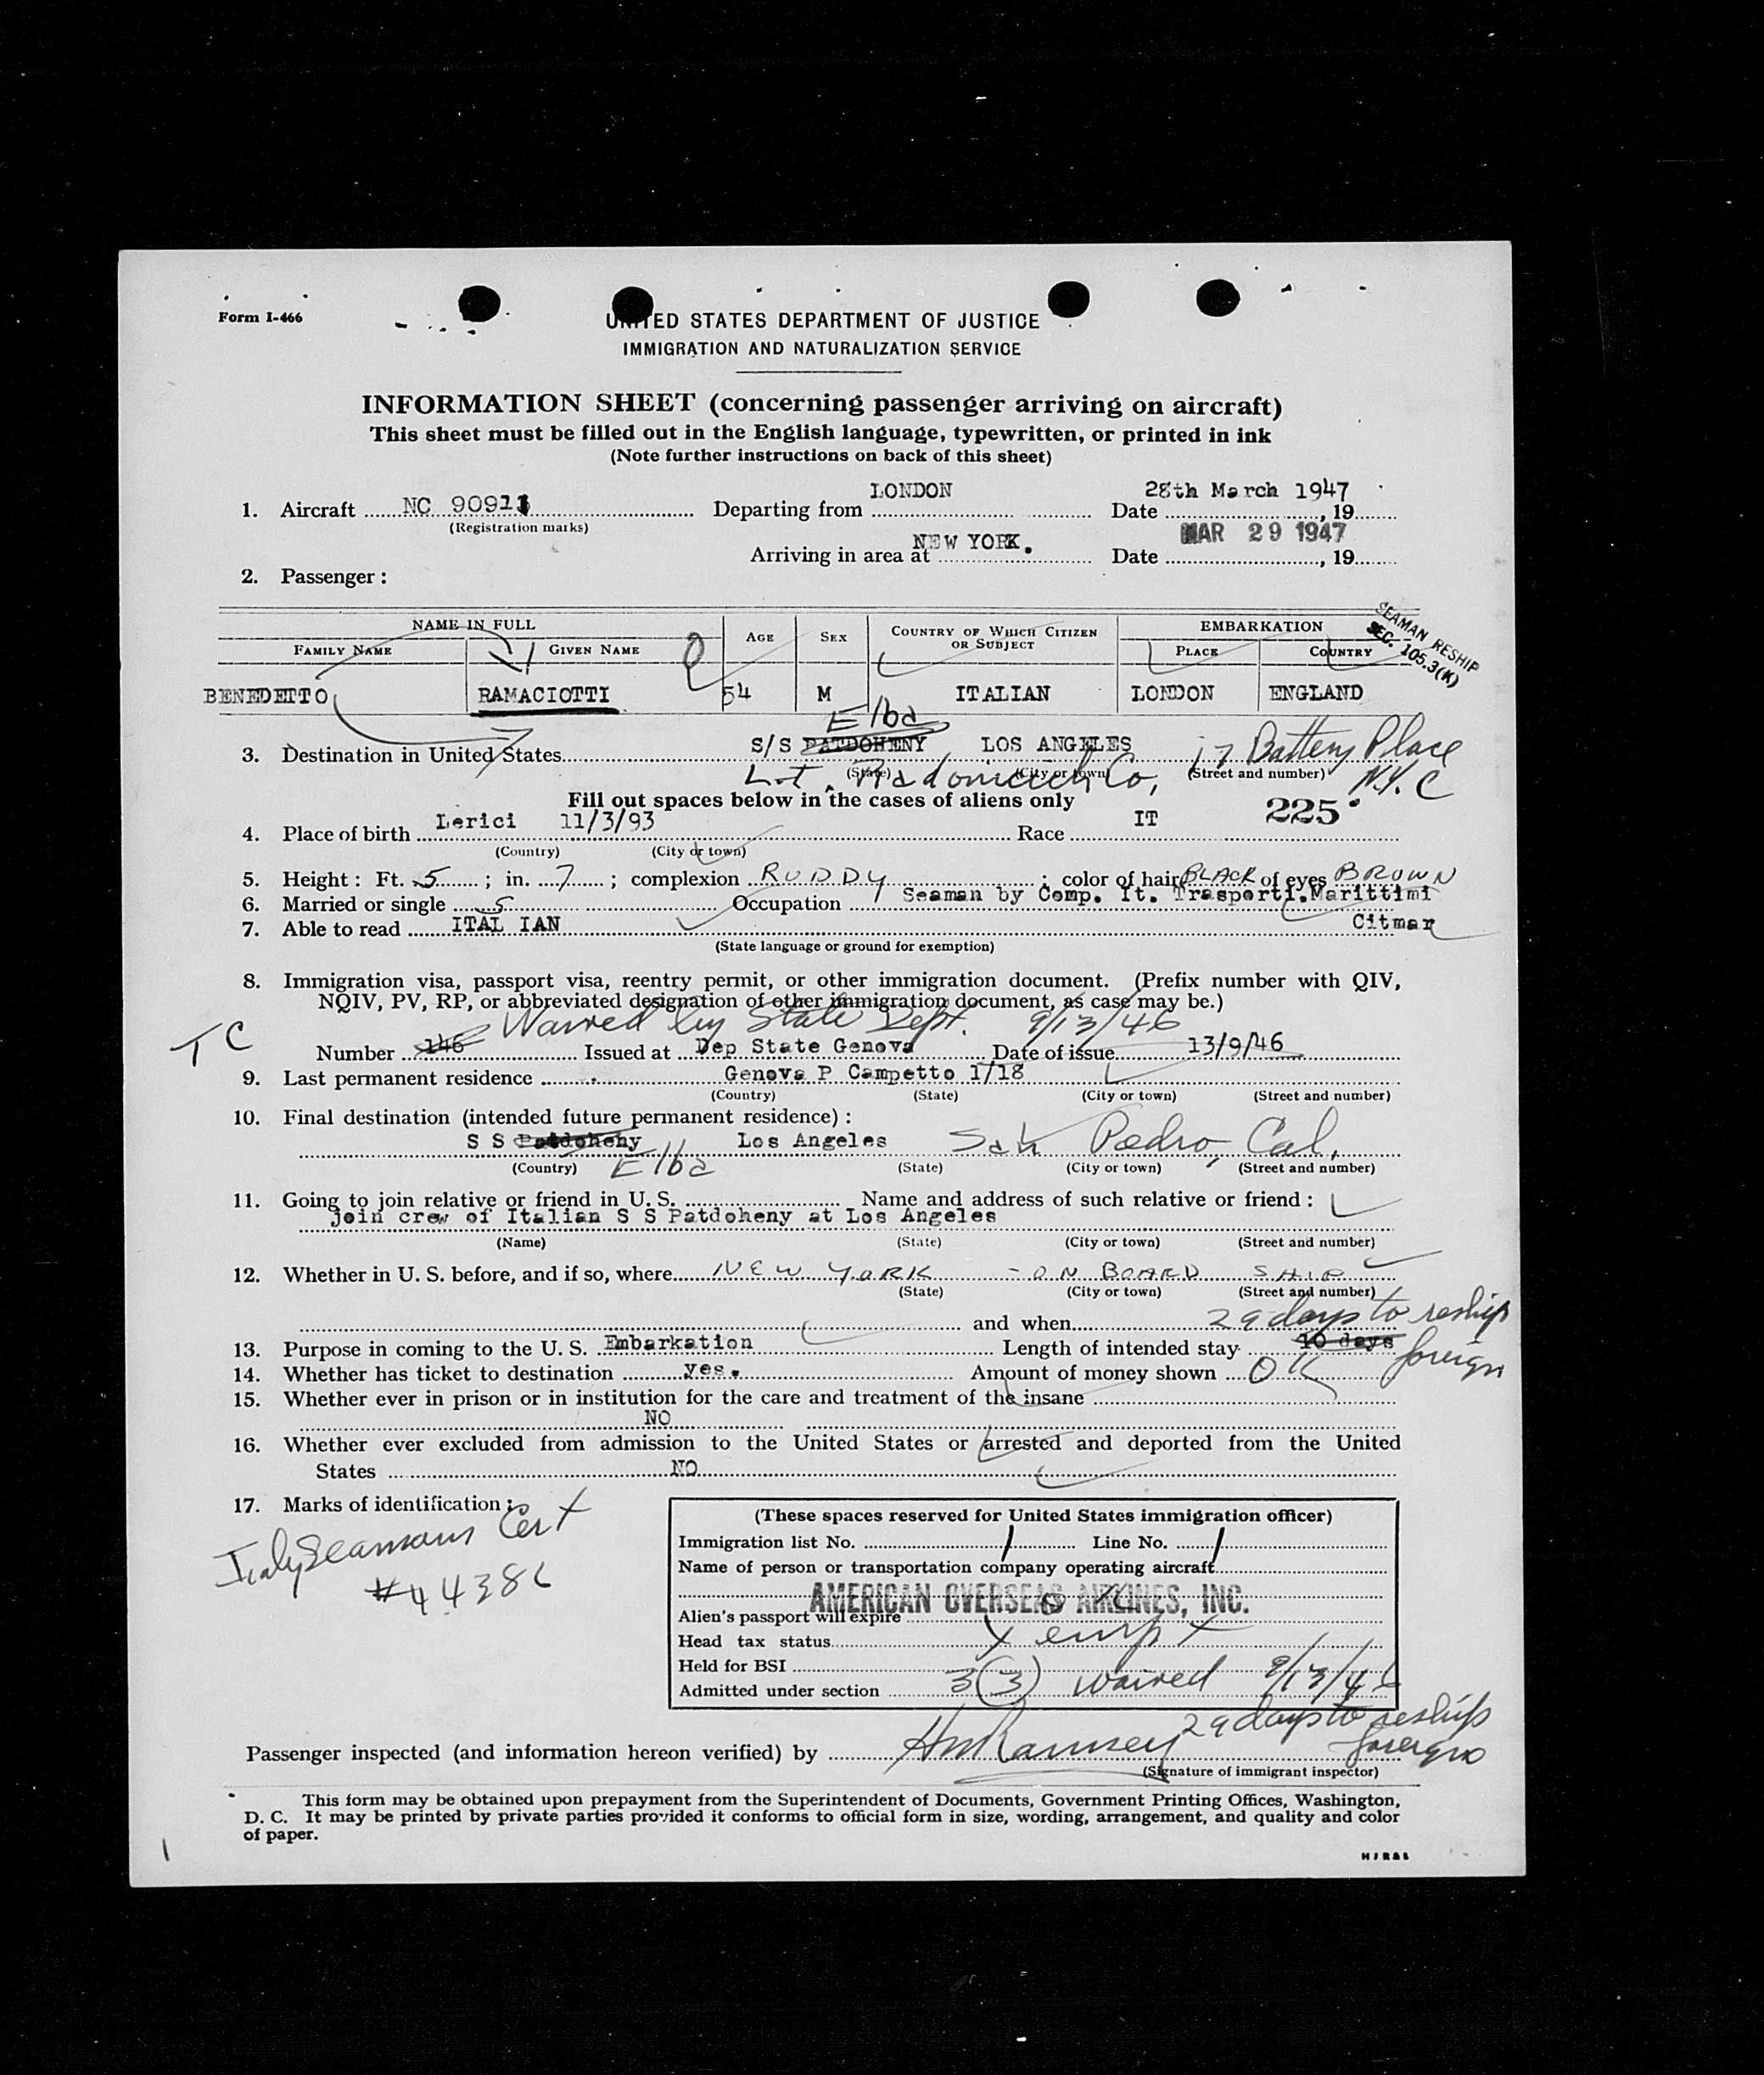 Form I-466
UNITED STATES DEPARTMENT OF JUSTICE
IMMIGRATION AND NATURALIZATION SERVICE
INFORMATION SHEET (concerning passenger arriving on aircraft)
This sheet must be filled out in the English language, typewritten, or printed in ink
(Note further instructions on back of this sheet)
LONDON 28th March 1947
1. Aircraft NC 90911 Departing from Date , 19
(Registration marks)
MAR 29 1947
NEW YORK.
Arriving in area at Date , 19
2. Passenger:
SEAMAN RESHIP
SEC. 105.3(K)
NAME IN FULL AGE SEX COUNTRY OF WHICH CITIZEN OR SUBJECT EMBARKATION
FAMILY NAME GIVEN NAME PLACE COUNTRY
BENEDETTO RAMACIOTTI 54 M ITALIAN LONDON ENGLAND
Elba
3. Destination in United States S/S PATDOHENY LOS ANGELES 17 Battery Place
(State) (City or town) (Street and number)
Co, N.Y.C
Fill out spaces below in the cases of aliens only 225
4. Place of birth Lerici 11/3/93 Race IT
(Country) (City or town)
5. Height: Ft. 5 ; in. 7 ; complexion RUDDY ; color of hair BLACK of eyes BROWN
6. Married or single S Occupation Seaman by Comp. It. Trasporti.Marittimi
7. Able to read ITAL IAN Citmar
(State language or ground for exemption)
8. Immigration visa, passport visa, reentry permit, or other immigration document. (Prefix number with QIV,
NQIV, PV, RP, or abbreviated designation of other immigration document, as case may be.)
Waived by State Dept. 9/13/46
TC
Number 146 Issued at Dep State Genova Date of issue 13/9/46
9. Last permanent residence Genova P Campetto 1/18
(Country) (State) (City or town) (Street and number)
10. Final destination (intended future permanent residence):
S S Patdoheny Los Angeles San Pedro, Cal.
(Country) Elba (State) (City or town) (Street and number)
11. Going to join relative or friend in U. S. Name and address of such relative or friend:
join crew of Italian S S Patdoheny at Los Angeles
(Name) (State) (City or town) (Street and number)
12. Whether in U. S. before, and if so, where NEW YORK - ON BOARD SHIP
(State) (City or town) (Street and number)
and when 29 days to reship
13. Purpose in coming to the U. S. Embarkation Length of intended stay 10 days foreign
14. Whether has ticket to destination yes. Amount of money shown OK
15. Whether ever in prison or in institution for the care and treatment of the insane
NO
16. Whether ever excluded from admission to the United States or arrested and deported from the United
States NO
17. Marks of identification:
Italy Seamans Cert
#44386
(These spaces reserved for United States immigration officer)
Immigration list No. 1 Line No. 1
Name of person or transportation company operating aircraft
AMERICAN OVERSEAS AIRLINES, INC.
Alien's passport will expire
Head tax status
Held for BSI
Admitted under section 3(3) waived 9/13/46
29 days to reship
foreign
Passenger inspected (and information hereon verified) by HM Ramsey
(Signature of immigrant inspector)
This form may be obtained upon prepayment from the Superintendent of Documents, Government Printing Offices, Washington,
D. C. It may be printed by private parties provided it conforms to official form in size, wording, arrangement, and quality and color
of paper.